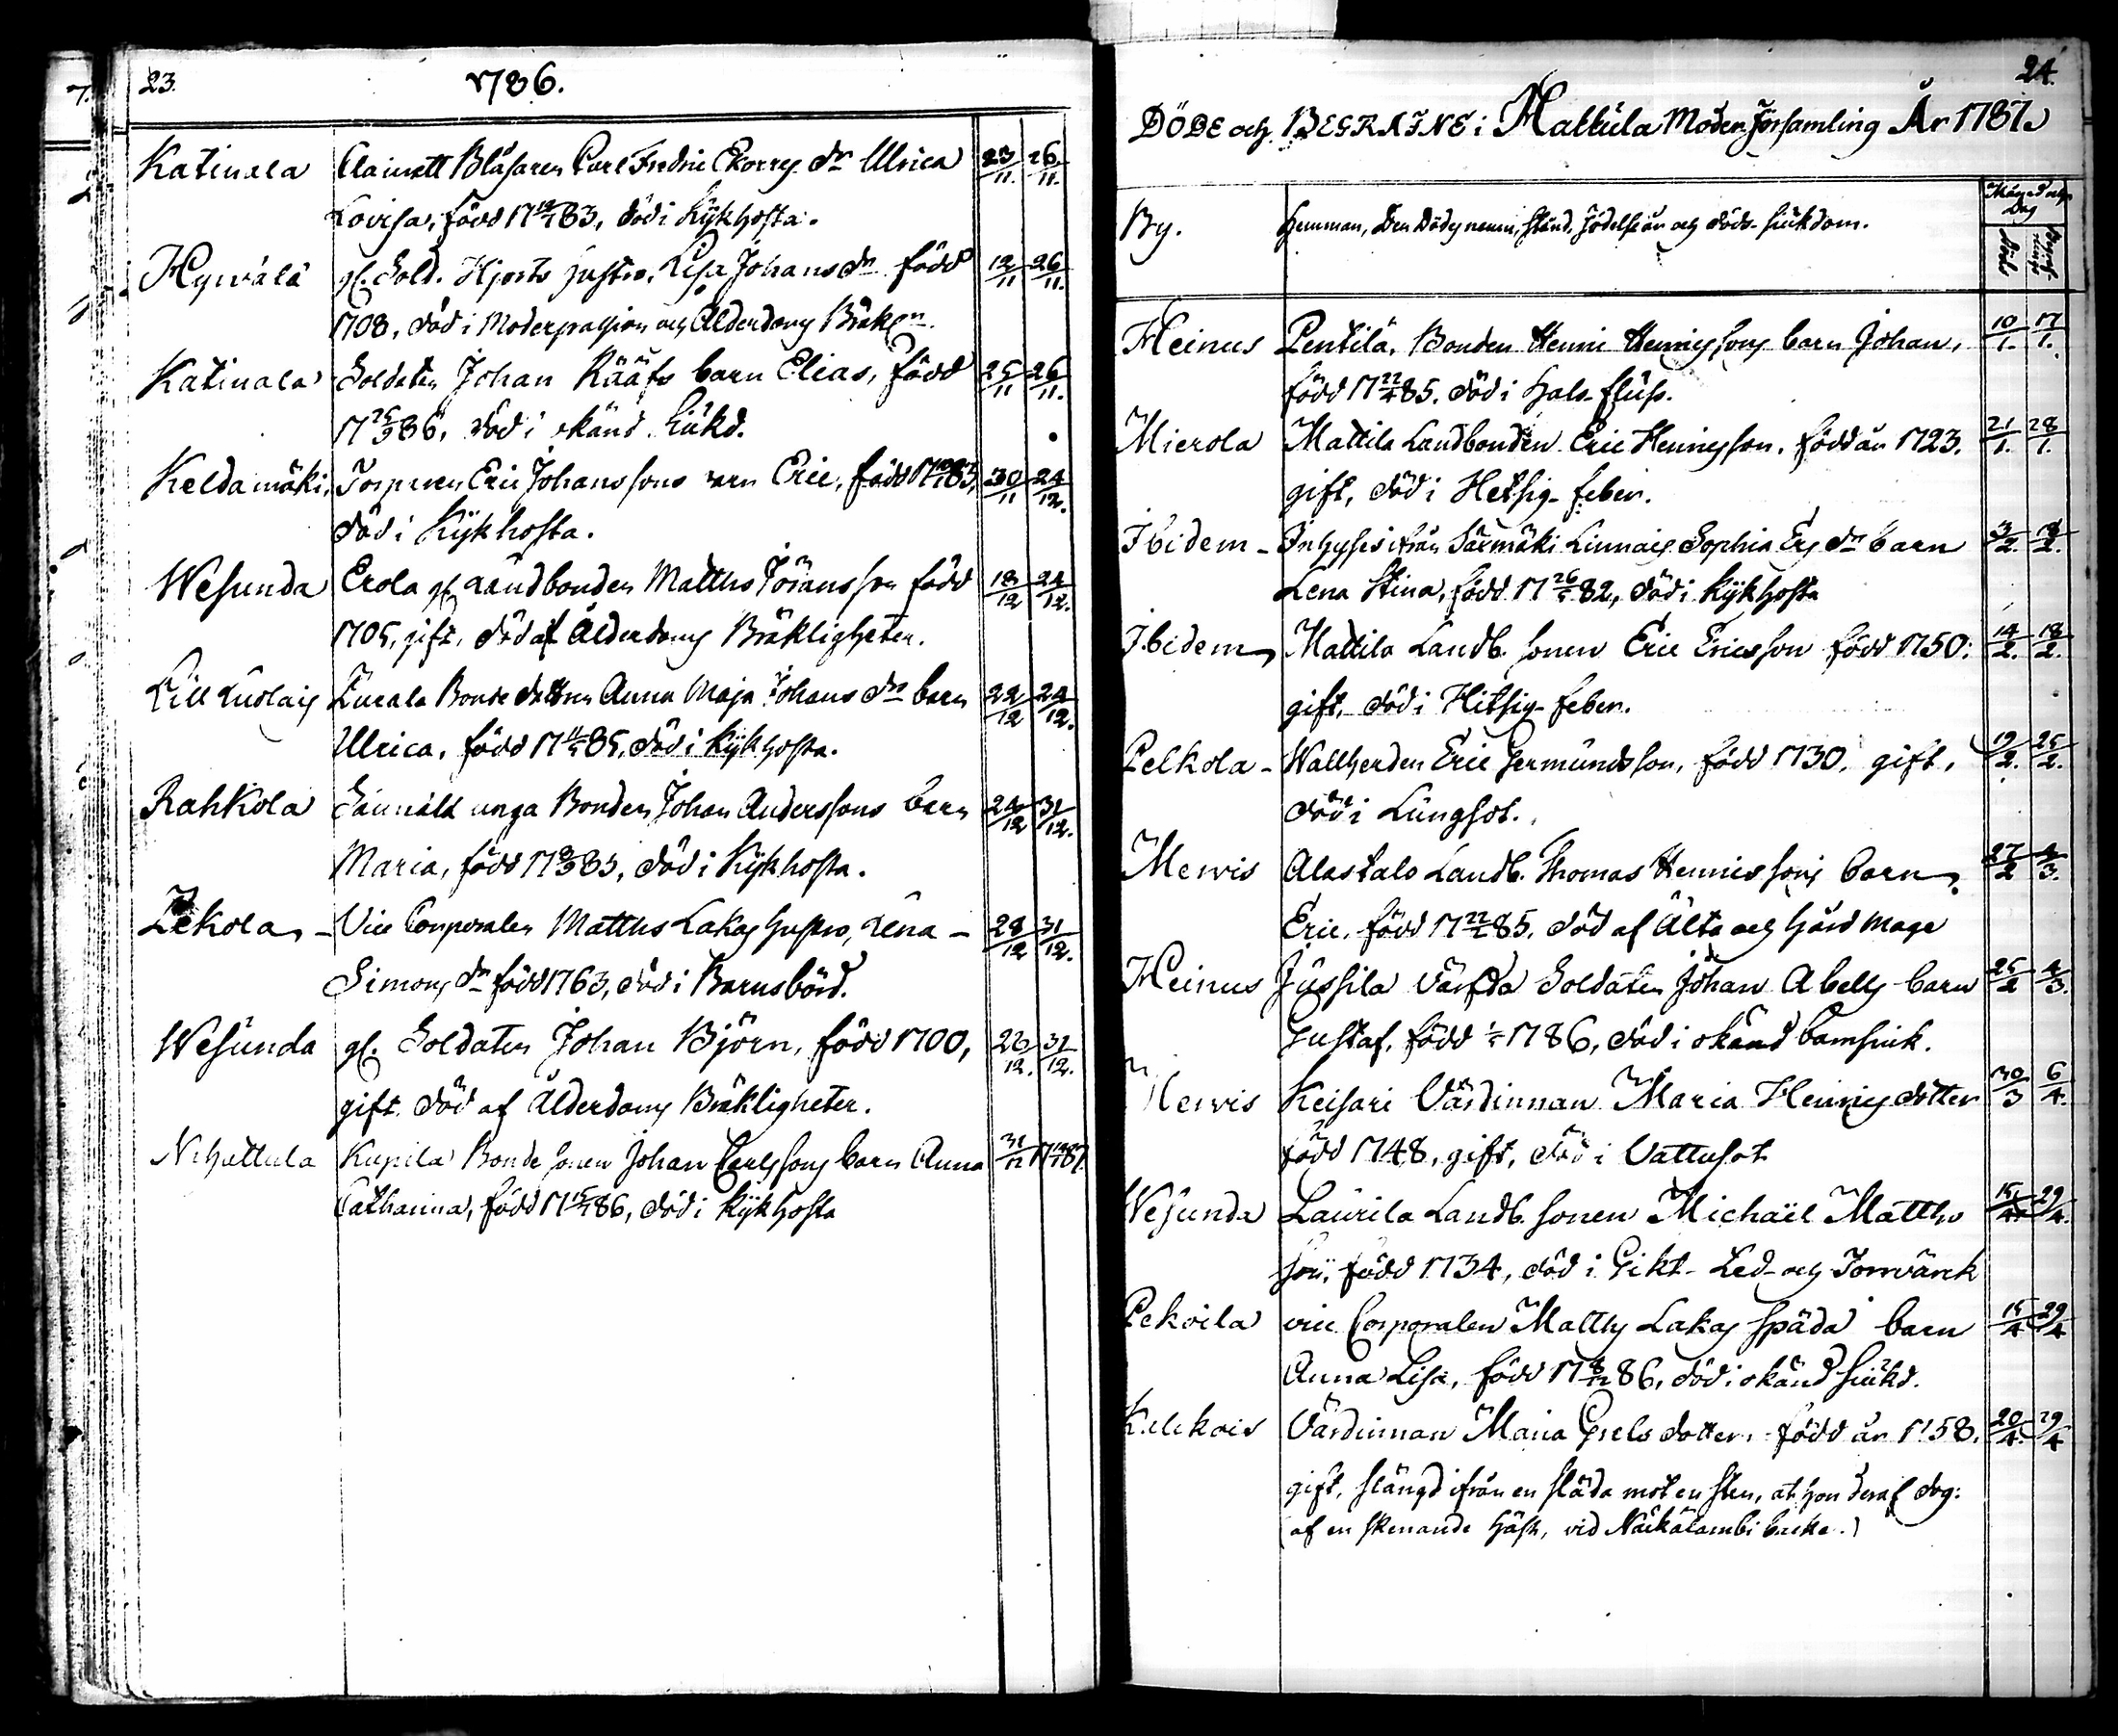 23.
1786.
Katinala Clainett Blåsaren Carl Fredric Ekorres dr Ulrica 23/11. 26/11.
Lovisa, född 17 19/1 83, död i Kykhosta.
Hyrvälä gl. Sold. Hjorts hustro, Lisa Johans dr född 12/11 26/11.
1708, död i Moderpassion och Ålderdoms Bräkln.
Katinala Soldaten Johan Rääfs barn Elias, född 25/11 26/11.
17 25/9 86, död i okänd siukd.
Keldamäki, Torparen Eric Johanssons barn Eric, född 17 83, 30/11 24/12.
död i Kykhosta.
Wesunda Erola gl. Landbonden Matths Jöransson född 18/12 24/12.
1705, gift, död af Ålderdoms Bräkligheter.
Lill Luolais Eurala Bonde dottren Anna Maja Johans dr barn 22/12 24/12.
Ulrica, född 17 11/5 85, död i Kykhosta.
Rahkola unga Bonden Johan Anderssons barn 24/12 31/12.
Maria, född 17 85, död i Kykhosta.
Lekola - Vice Corporalen Matths Lakas hustro, Lena - 28/12 31/12.
Simons dr född 1763, död i Barnsbörd.
Wesunda gl. Soldaten Johan Björn, född 1700, 26/12. 31/12.
gift. död af Ålderdoms Bräkligheter.
N. hattula Kupila Bonde sonen Johan Carlssons barn Anna 31/12 17 87.
Catharina, född 17 86, död i Kykhosta
24.
DÖDE och BEGRAFNE i Hattula Moder Församling År 1787.
By. Hemman, Den Dödes namn, stånd, födelseår och döds-siukdom. Månad och Dag
Död
Heinus Pentilä, Bonden Henric Henricssons barn Johan, 10/1. 17/1.
född 17 22/4 85. död i Hals-fluss.
Mierola Mattila Landbonden Eric Henricsson. född år 1723. 21/1. 28/1.
gift, död i Hetsig-feber.
Ibidem - Inhyses ifrån Särmäki Linnais Sophia Ers dr barn 3/2. 18/2.
Lena Stina, född 17 26/5 82, död i Kykhosta
Ibidem Mattila Landb. sonen Eric Ericsson född 1750: 14/2. 18/2.
gift, död i Hitsig-feber.
Pelkola - Wallherden Eric Germundsson, född 1730, gift, 19/2. 25/2.
död i Lungsot.
Mervis Alastalo Landb. Thomas Henricssons barn 27/2 4/3.
Eric, född 17 85. död af Älta och hård mage
Heinus Jussila Värfda Soldaten Johan Abells barn 25/2 4/3.
Gustaf, född 1786, död i okänd barnsiuk.
Mervis Keisari Värdinnan Maria Henrics dotter 30/3 6/4.
född 1748, gift, död i Vattusot
Wesunda Laurila Landb. sonen Michaël Matths 15/4 29/4.
son, född 1734, död i Gikt-Led-och Torrvärck
Pekoila vice Corporalen Matths Lakas späda barn 15/4 29/4
Anna Lisa, född 17 8/12 86, död i okänd siukd.
Värdinnan Maria Grels dotter, född år 1758. 20/4. 29/4
gift, slängd ifrån en släda mot en sten, at hon deraf dog:
(af en skenande häst, vid Näikälambi backe.)